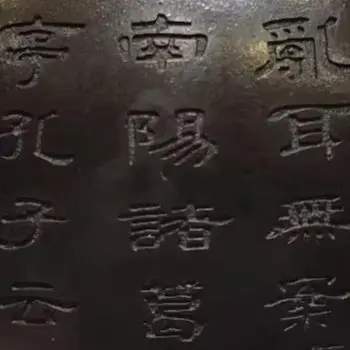 亂耳無案
南陽諸葛
亭孔子云